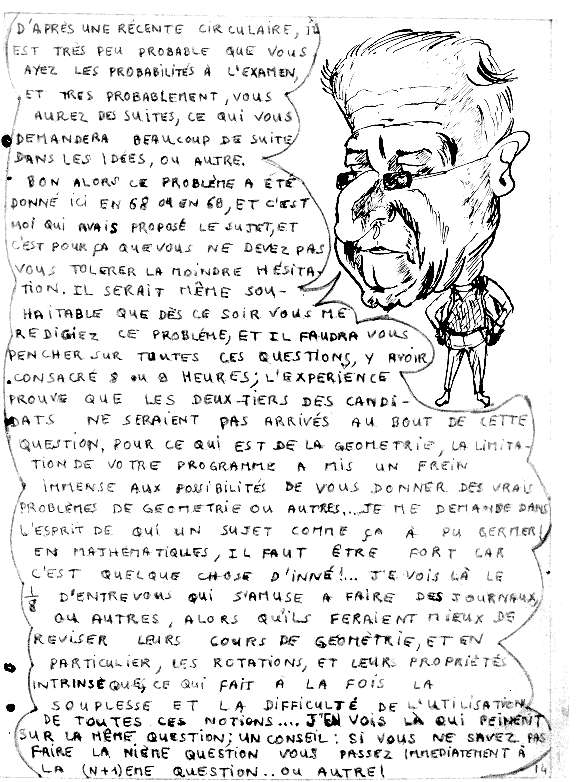 D'APRÈS UNE RÉCENTE CIRCULAIRE, IL
EST TRÉS PEU PROBABLE QUE VOUS
AYEZ LES PROBABILITÉS À L'EXAMEN,
ET TRES PROBABLEMENT, VOUS
AUREZ DES SUITES, CE QUI VOUS
DEMANDERA BEAUCOUP DE SUITE
DANS LES IDÉES, OU AUTRE.
BON ALORS CE PROBLÉME A ÉTÉ
DONNÉ ICI EN 68 OU EN 60, ET C'EST
MOI QUI AVAIS PROPOSÉ LE SUJET, ET
C'EST POUR ÇA QUE VOUS NE DEVEZ PAS
VOUS TOLERER LA MOINDRE HÉSITA-
TION. IL SERAIT MÊME SOU-
HAITABLE QUE DÈS CE SOIR VOUS ME
REDIGIEZ CE PROBLÉME, ET IL FAUDRA VOUS
PENCHER SUR TOUTES CES QUESTIONS, Y AVOIR
CONSACRÉ 8 OU 9 HEURES; L'EXPERIENCE
PROUVE QUE LES DEUX-TIERS DES CANDI-
DATS NE SERAIENT PAS ARRIVÉS AU BOUT DE CETTE
QUESTION. POUR CE QUI EST DE LA GEOMETRIE, LA LIMITA-
TION DE VOTRE PROGRAMME A MIS UN FREIN
IMMENSE AUX POSSIBILITÉS DE VOUS DONNER DES VRAIS
PROBLÈMES DE GEOMETRIE OU AUTRES... JE ME DEMANDE DANS
L'ESPRIT DE QUI UN SUJET COMME ÇA A PU GERMER!
EN MATHEMATIQUES, IL FAUT ÊTRE FORT CAR
C'EST QUELQUE CHOSE D'INNÉ!... J'E VOIS LÀ LE
1/8 D'ENTRE VOUS QUI S'AMUSE A FAIRE DES JOURNAUX,
OU AUTRES, ALORS QU'ILS FERAIENT MIEUX DE
REVISER LEURS COURS DE GEOMÈTRIE, ET EN
PARTICULIER, LES ROTATIONS, ET LEURS PROPRIÉTÉS
INTRINSÈQUES, CE QUI FAIT A LA FOIS LA
SOUPLESSE ET LA DIFFICULTÉ DE L'UTILISATION
DE TOUTES CES NOTIONS.... J'EN VOIS LÀ QUI PEINENT
SUR LA MÊME QUESTION; UN CONSEIL: SI VOUS NE SAVEZ PAS
FAIRE LA NIÈME QUESTION VOUS PASSEZ IMMEDIATEMENT À
LA (N+1)EME QUESTION.. OU AUTRE!
14